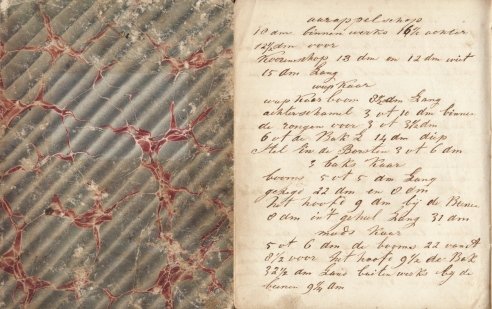 aarappel schop
10 dm binnen werks 16½ achter
12½ dm voor
Koornschop 13 dm en 12 dm wit
15 dm Lang
wip Kaar
wip Kaar boom 8½ dm Lang
achterschamel 3 vt 10 dm binne
de rongen voor 3 vt 3½ dm
6 vt de Bak L 14 dm diep
Stel En de Borsten 3 vt 6 dm
3 baks Kaar
booms 5 vt 5 dm Lang
22 dm en 8 dm
het hoofd 9 dm bij de Bune
8 dm int geheel Lang 31 dm
Kaar
5 vt 6 dm de booms 22
8½ voor het hoofd 9½ de Bak
32½ dm Land buiten werks bij de
beunen 9¼ dm